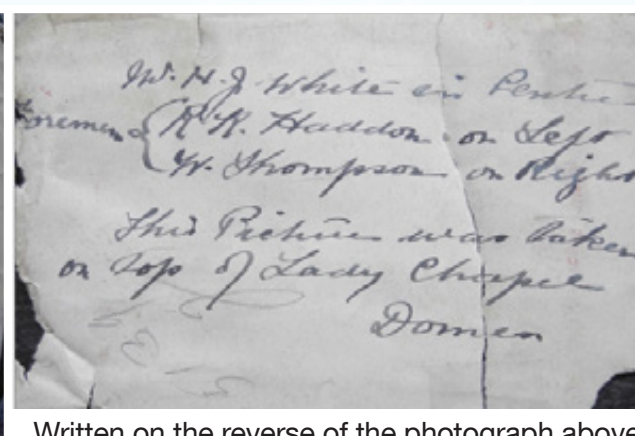 W. H. J. White in Centre
Foremen { R. K. Haddon on Left
W. Thompson on Right
This Picture was taken
on top of Lady Chapel
Domen
Written on the reverse of the photograph above